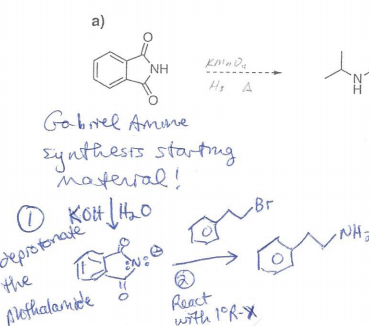 a)
O
NH
O
KMnO4
H3 Δ
N
H
Gabriel Amine
synthesis starting
material!
① KOH H2O
deprotonate
the
phthalamide
O
N
O
Br
②
React
with 1° R-X
NH2